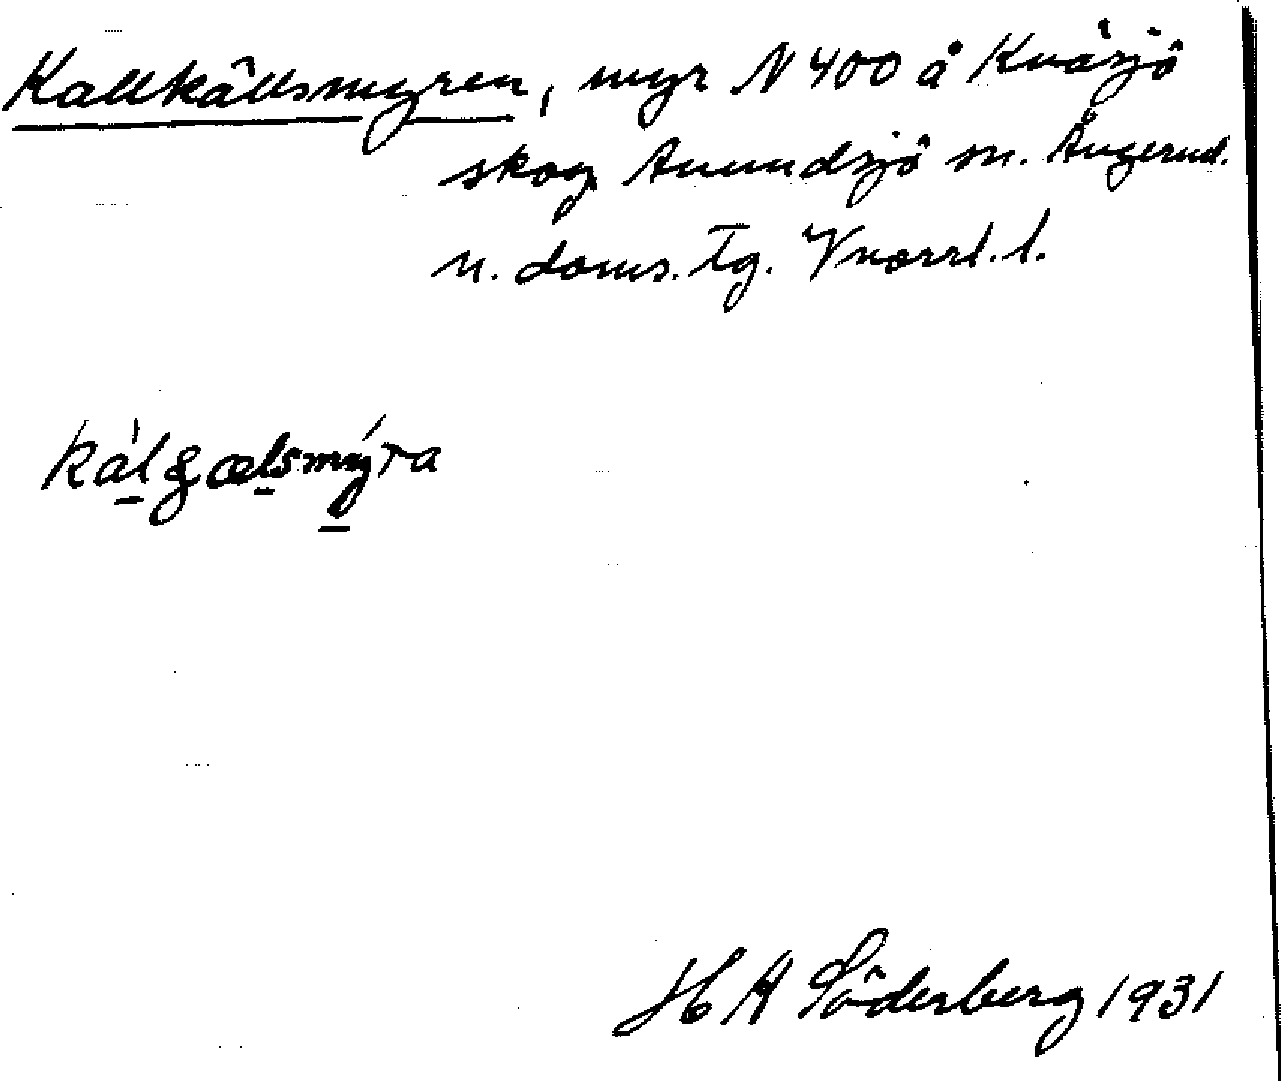 Kallkällsmyren, myr N 400 å Kvåsjö
skog Anundsjö sn. Ångerml.
n. doms. Tg. Vnorrl. l.
kálgælsmýra
H A Söderberg 1931